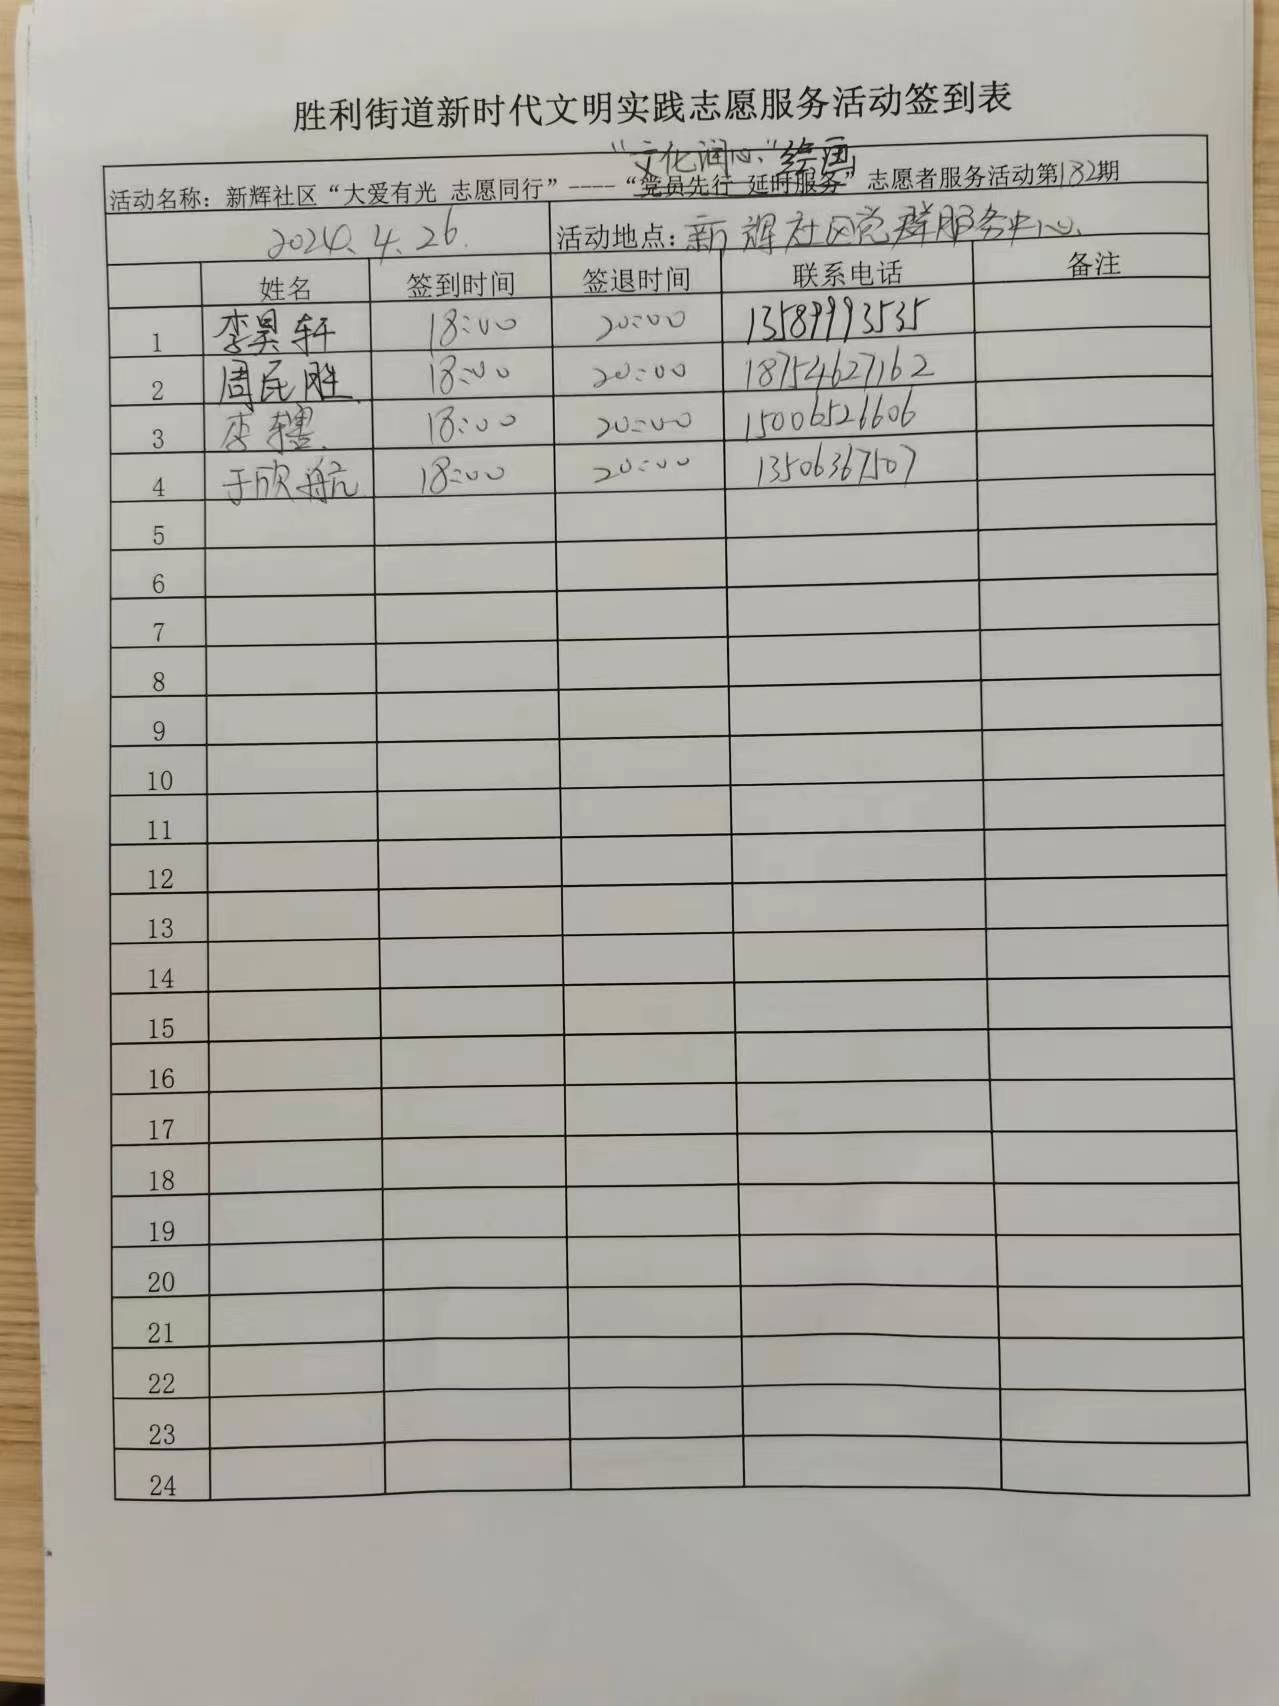 胜利街道新时代文明实践志愿服务活动签到表
“文化润心”绘画
活动名称：新辉社区“大爱有光 志愿同行”----“党员先行 延时服务”志愿者服务活动第182期
2024.4.26. 活动地点：新辉社区党群服务中心.
姓名 签到时间 签退时间 联系电话 备注
1 李昊轩 18:00 20:00 13589993535
2 周民胜 18:00 20:00 18754627162
3 李 18:00 20:00 15006521606
4 于欣航 18:00 20:00 13506367507
5
6
7
8
9
10
11
12
13
14
15
16
17
18
19
20
21
22
23
24